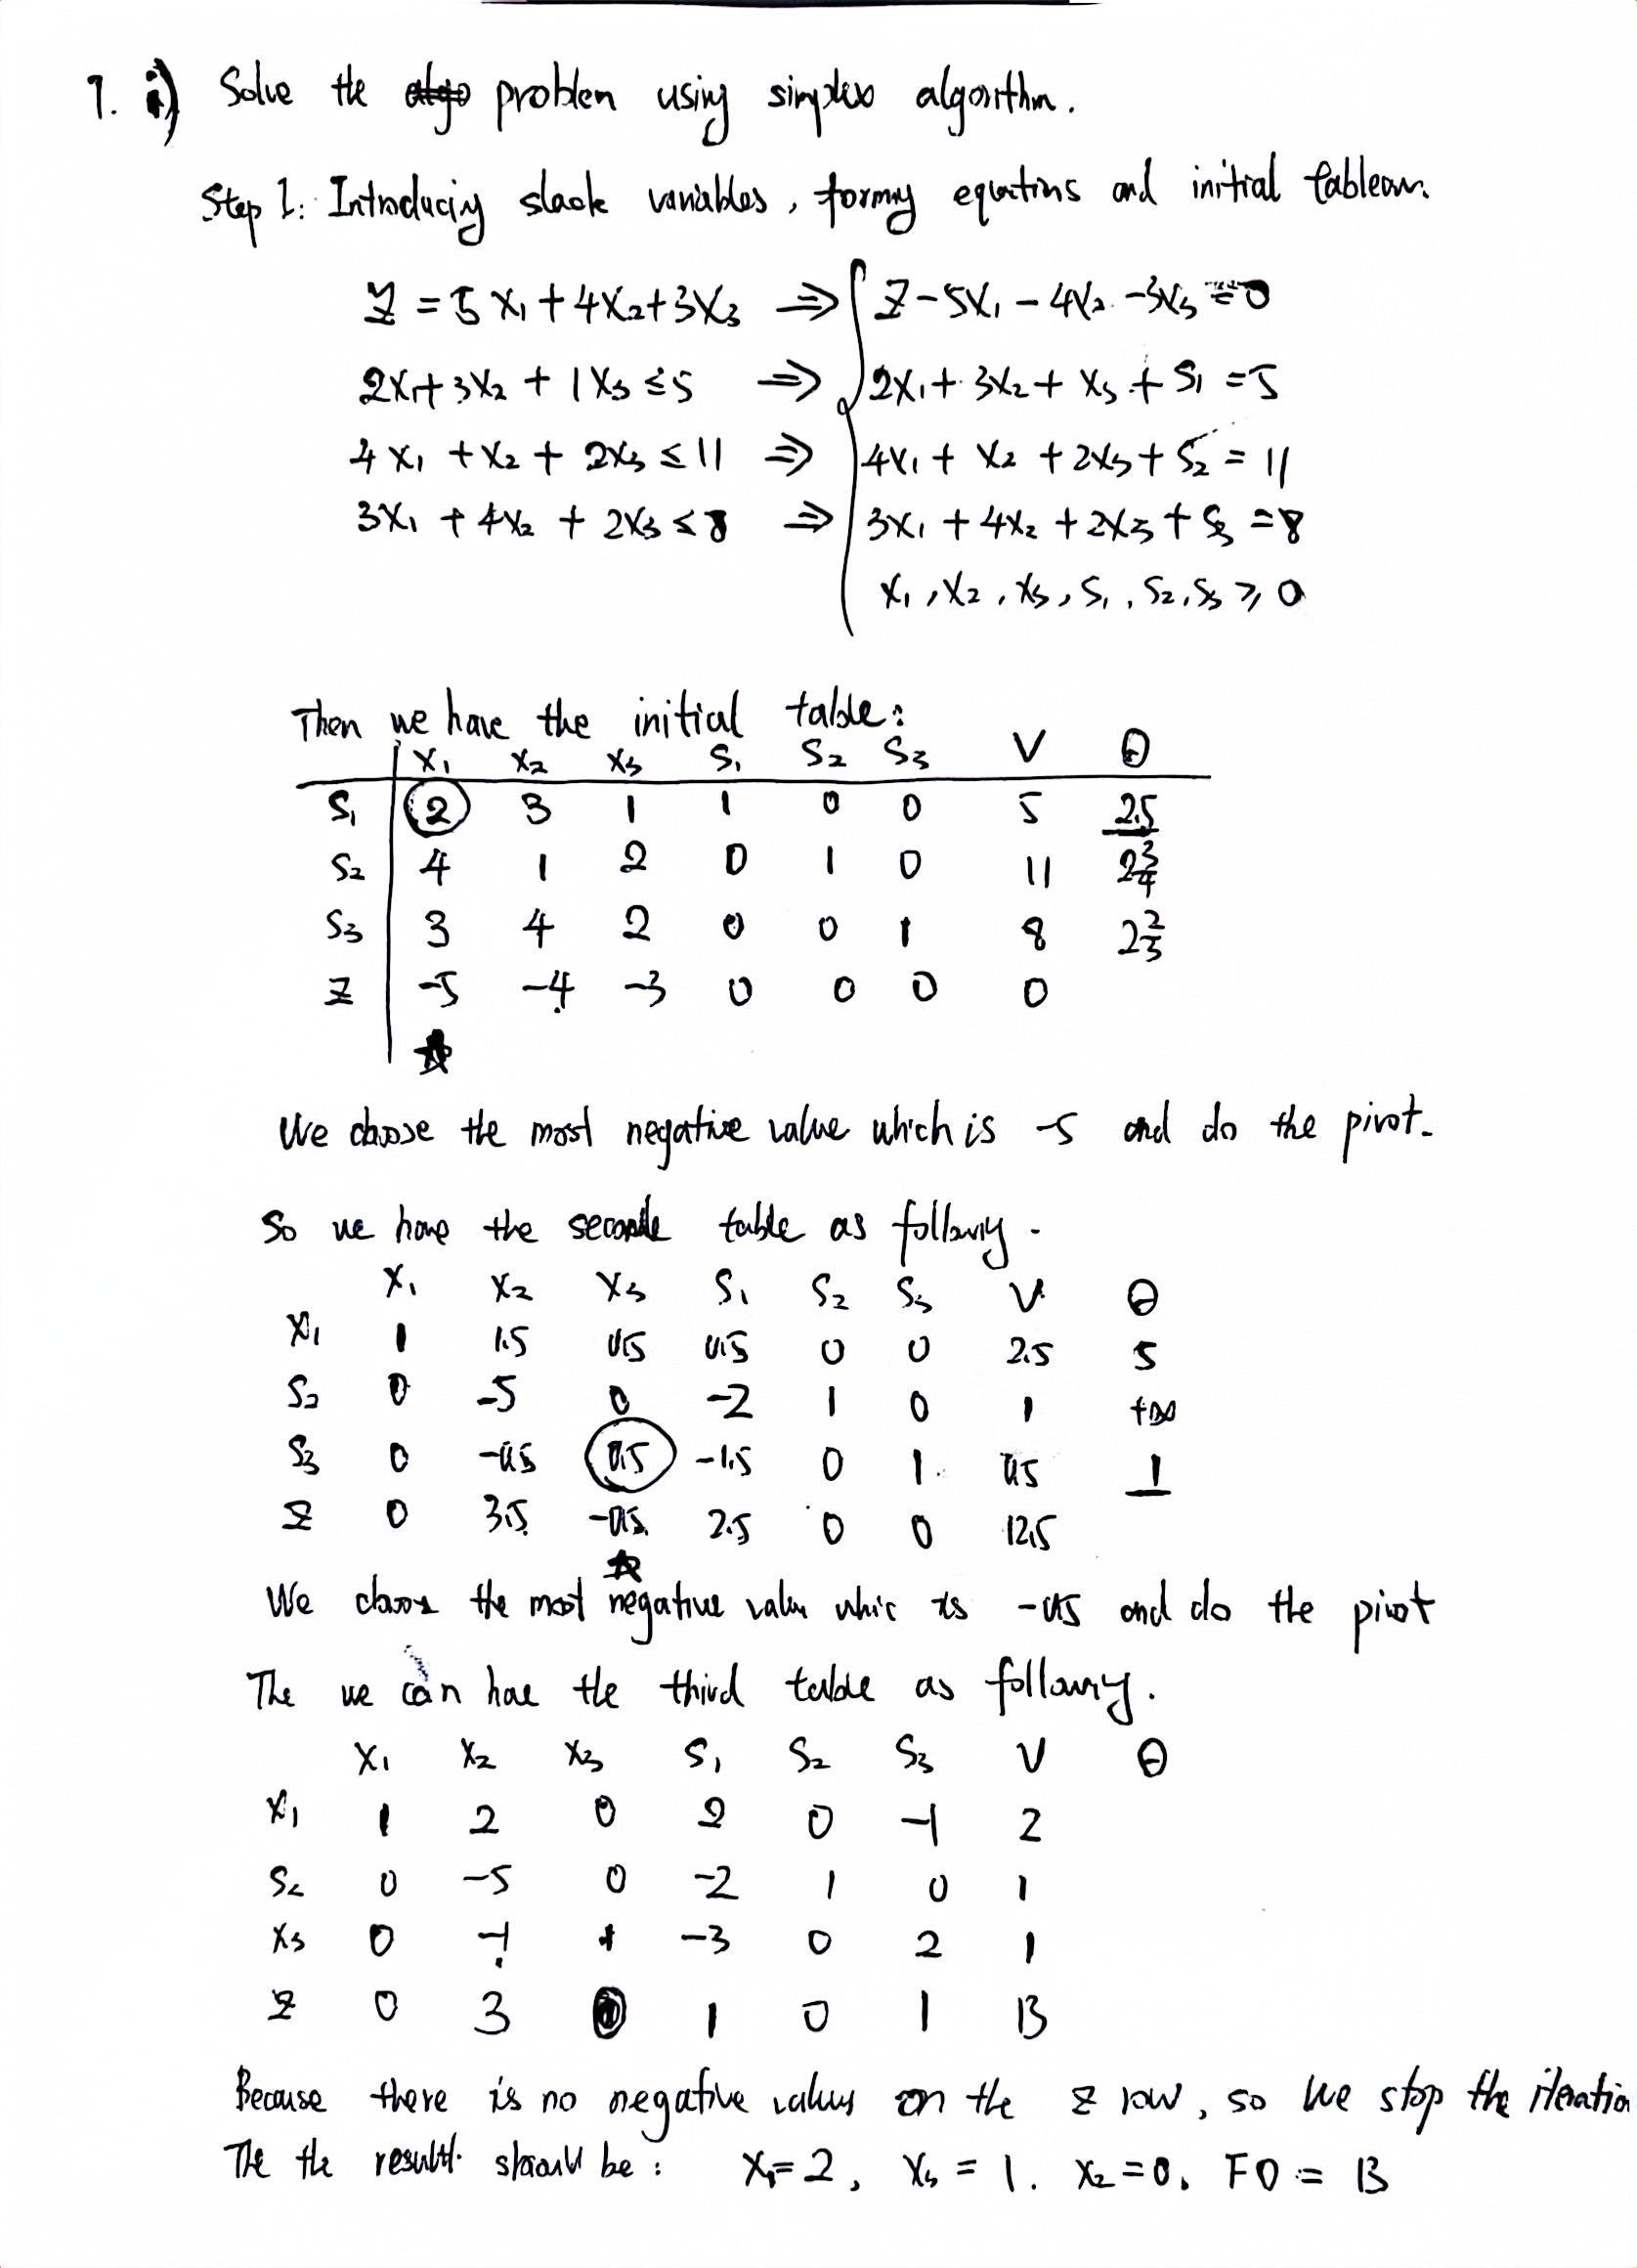 1. i) Solve the algo problem using simplex algorithm.
Step 1: Introducing slack variables, forming equations and initial tableau.
Z = 5X₁ + 4X₂ + 3X₃ ⇒ Z - 5X₁ - 4X₂ - 3X₃ = 0
2X₁ + 3X₂ + 1X₃ ≤ 5 ⇒ 2X₁ + 3X₂ + X₃ + S₁ = 5
4X₁ + X₂ + 2X₃ ≤ 11 ⇒ 4X₁ + X₂ + 2X₃ + S₂ = 11
3X₁ + 4X₂ + 2X₃ ≤ 8 ⇒ 3X₁ + 4X₂ + 2X₃ + S₃ = 8
X₁, X₂, X₃, S₁, S₂, S₃ ≥ 0
Then we have the initial table:
X₁ X₂ X₃ S₁ S₂ S₃ V θ
S₁ 2 3 1 1 0 0 5 2.5
S₂ 4 1 2 0 1 0 11 2 3/4
S₃ 3 4 2 0 0 1 8 2 2/3
Z -5 -4 -3 0 0 0 0
☆
We choose the most negative value which is -5 and do the pivot.
So we have the seconde table as following.
X₁ X₂ X₃ S₁ S₂ S₃ V θ
X₁ 1 1.5 0.5 0.5 0 0 2.5 5
S₂ 0 -5 0 -2 1 0 1 +∞
S₃ 0 -0.5 0.5 -1.5 0 1 0.5 1
Z 0 3.5 -0.5 2.5 0 0 12.5
☆
We choose the most negative value whic is -0.5 and do the pivot
The we can hae the third table as following.
X₁ X₂ X₃ S₁ S₂ S₃ V θ
X₁ 1 2 0 2 0 -1 2
S₂ 0 -5 0 -2 1 0 1
X₃ 0 -1 1 -3 0 2 1
Z 0 3 0 1 0 1 13
Because there is no negative values on the Z row, so we stop the iteration
The the result should be: X₁=2, X₃=1. X₂=0. FO = 13